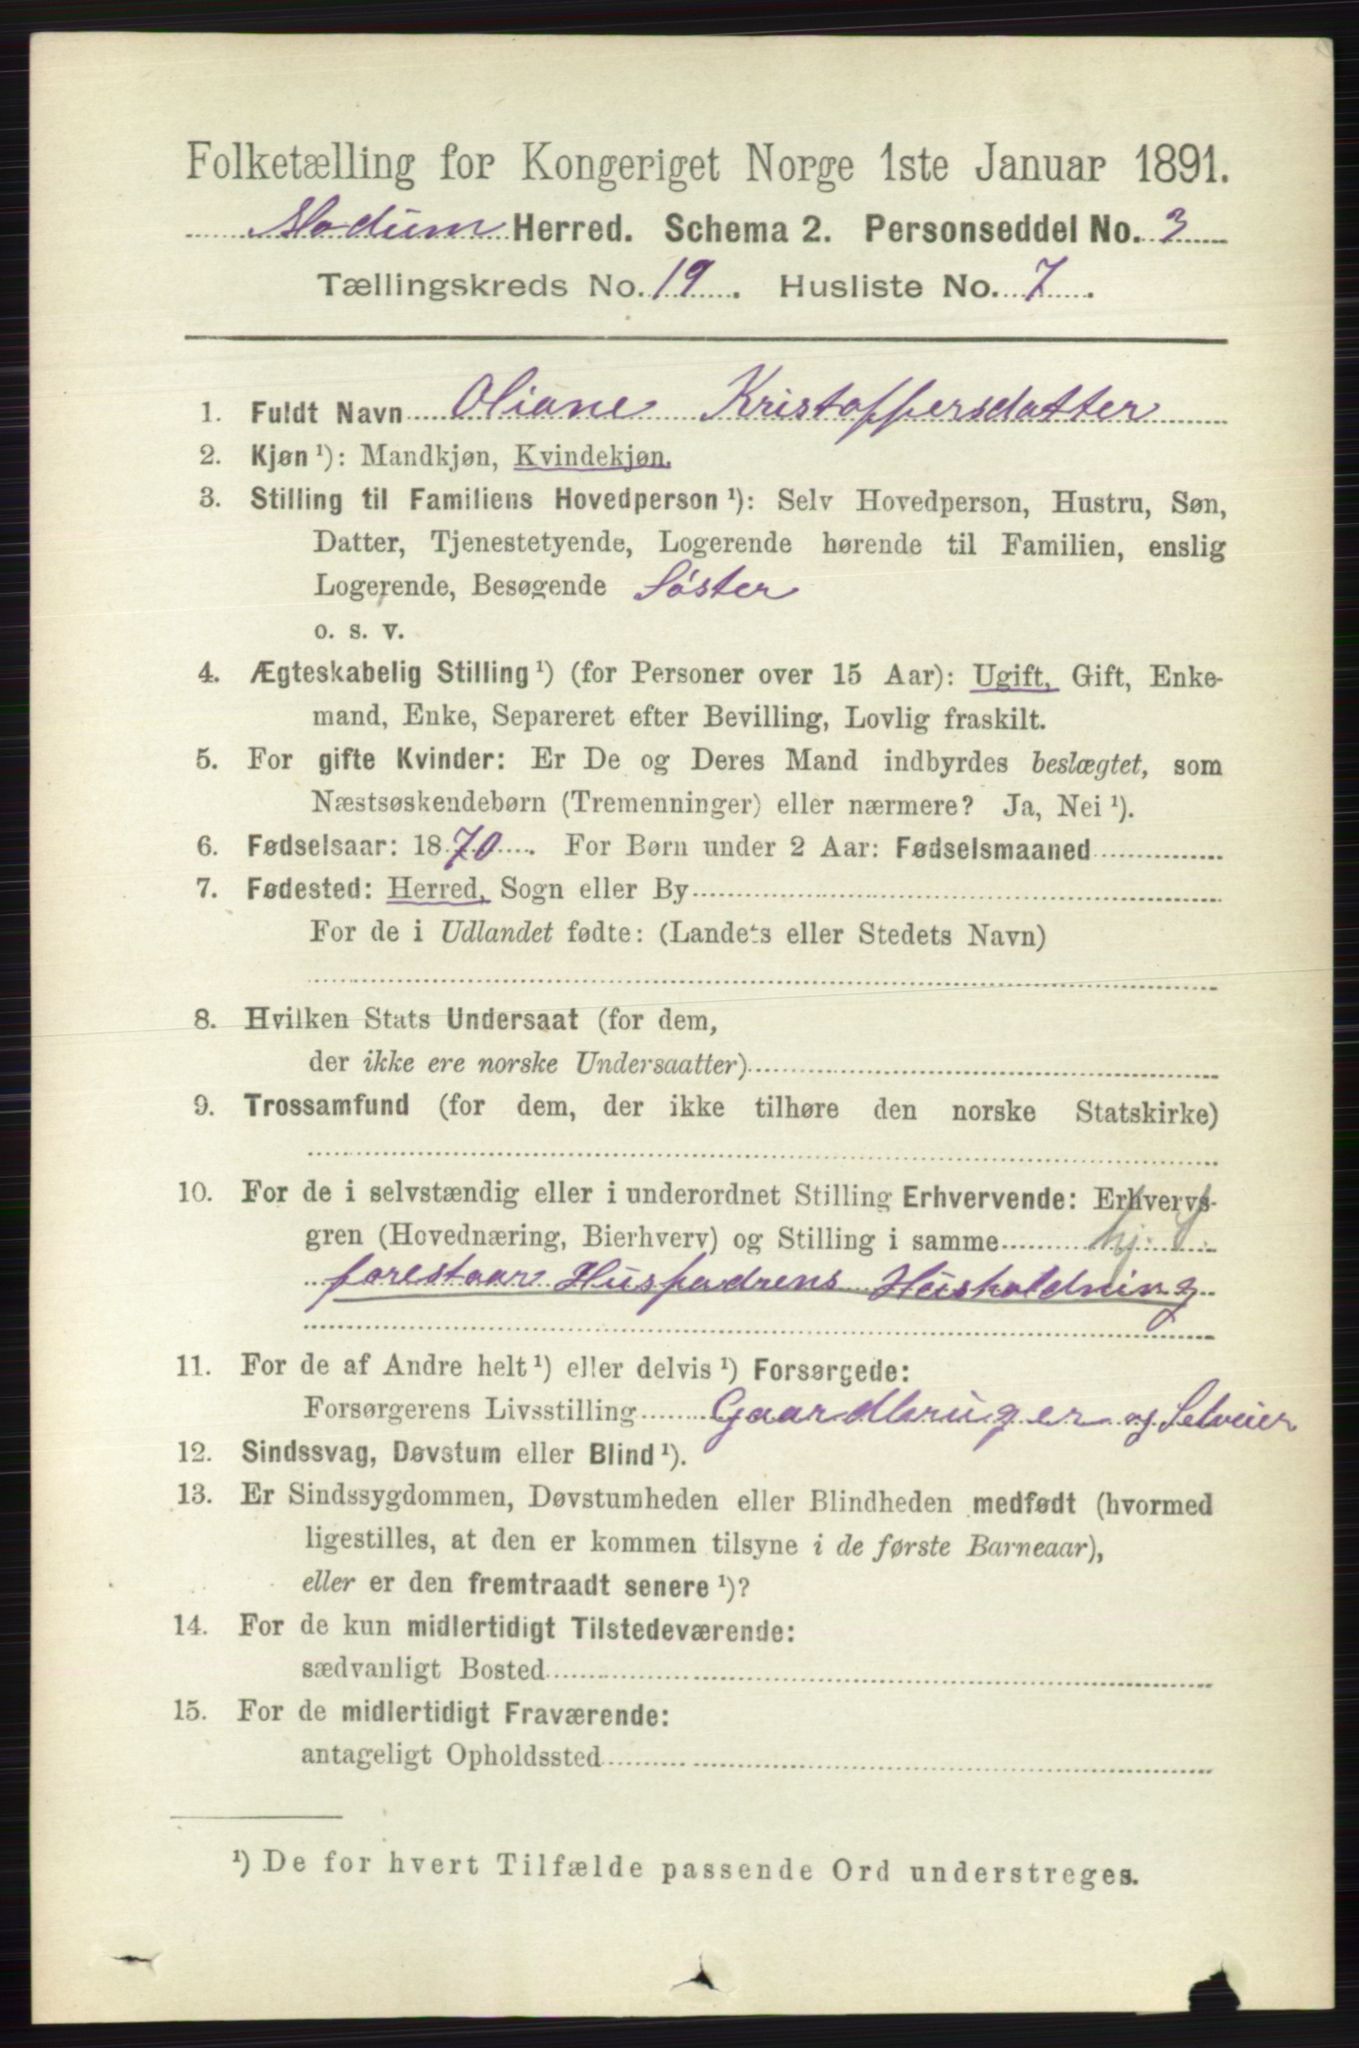 Folketælling for Kongeriget Norge 1ste Januar 1891.
Modum Herred. Schema 2. Personseddel No. 3
Tællingskreds No. 19. Husliste No. 7.
1. Fuldt Navn Oliane Kristoffersdatter
2. Kjøn ¹): Mandkjøn, Kvindekjøn.
3. Stilling til Familiens Hovedperson ¹): Selv Hovedperson, Hustru, Søn,
Datter, Tjenestetyende, Logerende hørende til Familien, enslig
Logerende, Besøgende Søster
o. s. v.
4. Ægteskabelig Stilling ¹) (for Personer over 15 Aar): Ugift, Gift, Enke-
mand, Enke, Separeret efter Bevilling, Lovlig fraskilt.
5. For gifte Kvinder: Er De og Deres Mand indbyrdes beslægtet, som
Næstsøskendebørn (Tremenninger) eller nærmere? Ja, Nei ¹).
6. Fødselsaar: 1870. For Børn under 2 Aar: Fødselsmaaned
7. Fødested: Herred, Sogn eller By
For de i Udlandet fødte: (Landets eller Stedets Navn)
8. Hvilken Stats Undersaat (for dem,
der ikke ere norske Undersaatter)
9. Trossamfund (for dem, der ikke tilhøre den norske Statskirke)
10. For de i selvstændig eller i underordnet Stilling Erhvervende: Erhvervs-
gren (Hovednæring, Bierhverv) og Stilling i samme
forestaar Husfadrens Husholdning
11. For de af Andre helt ¹) eller delvis ¹) Forsørgede:
Forsørgerens Livsstilling Gaardbruger og Selveier
12. Sindssvag, Døvstum eller Blind ¹).
13. Er Sindssygdommen, Døvstumheden eller Blindheden medfødt (hvormed
ligestilles, at den er kommen tilsyne i de første Barneaar),
eller er den fremtraadt senere ¹)?
14. For de kun midlertidigt Tilstedeværende:
sædvanligt Bosted
15. For de midlertidigt Fraværende:
antageligt Opholdssted
¹) De for hvert Tilfælde passende Ord understreges.